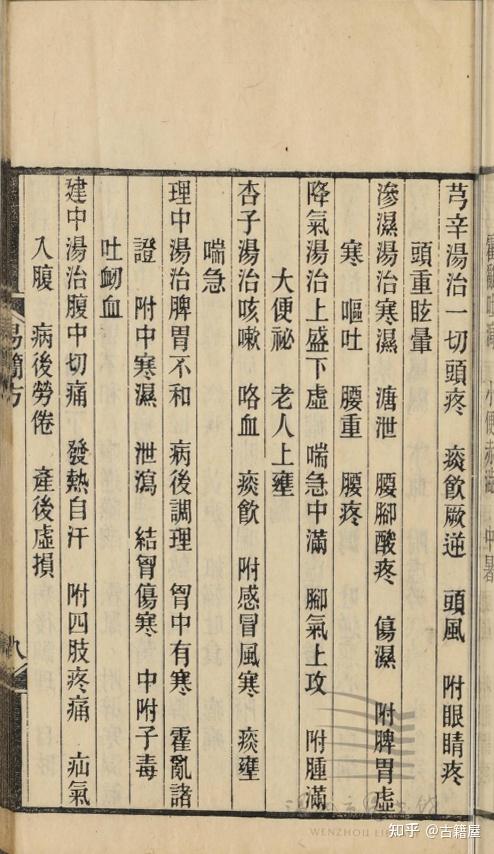 芎辛湯治一切頭疼　痰飲厥逆　頭風　附眼睛疼
頭重眩暈
滲濕湯治寒濕　溏泄　腰腳酸疼　傷濕　附脾胃虛
寒　嘔吐　腰重　腰疼
降氣湯治上盛下虛　喘急中滿　腳氣上攻　附腫滿
大便祕　老人上壅
杏子湯治咳嗽　咯血　痰飲　附感冒風寒　痰壅
喘急
理中湯治脾胃不和　病後調理　胷中有寒　霍亂諸
證　附中寒濕　泄瀉　結胷傷寒　中附子毒
吐衂血
建中湯治腹中切痛　發熱自汗　附四肢疼痛　疝氣
入腹　病後勞倦　產後虛損
易簡方
九
WENZHOU LI
知乎 @古籍屋